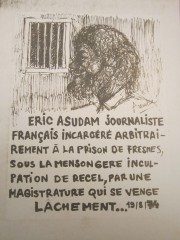 ERIC ASUDAM JOURNALISTE
FRANÇAIS INCARCÉRÉ ARBITRAI-
REMENT À LA PRISON DE FRESNES,
SOUS LA MENSONGERE INCUL-
PATION DE RECEL, PAR UNE
MAGISTRATURE QUI SE VENGE
LÂCHEMENT...